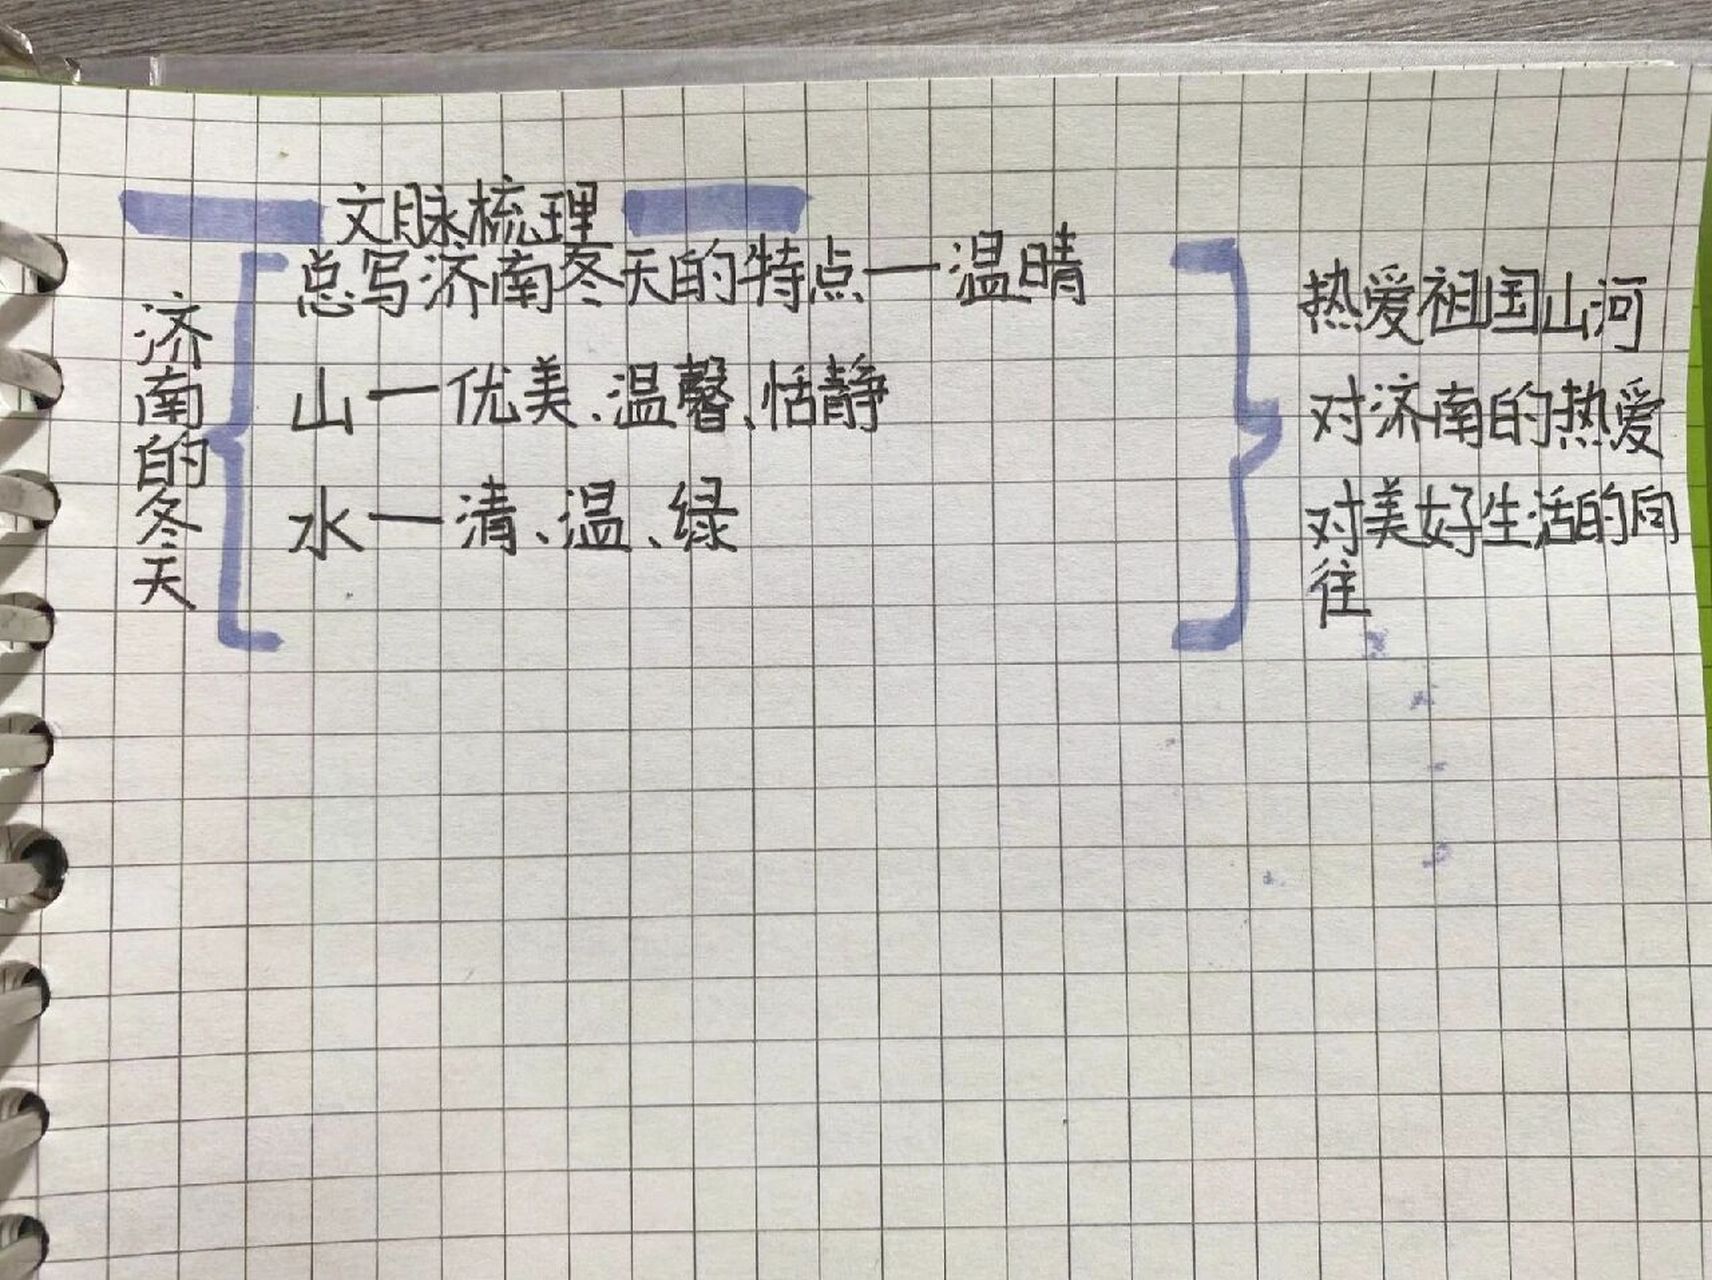 文脉梳理
济南的冬天
总写济南冬天的特点一温晴
山一优美、温馨、恬静
水一清、温、绿
热爱祖国山河
对济南的热爱
对美好生活的向
往